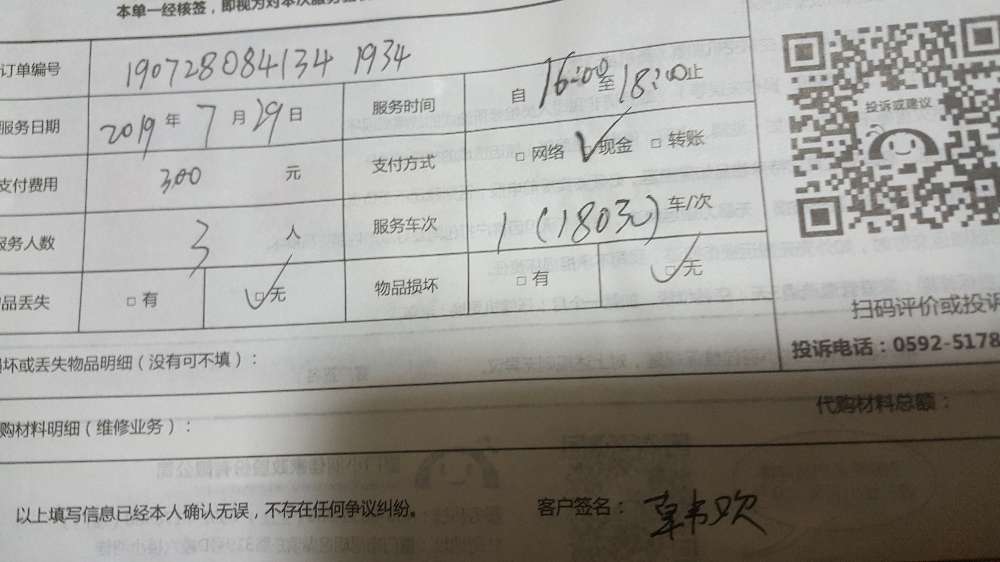 本单一经核签，即视为对本次服务
订单编号 190728084134 1934
服务日期 2019 年 7 月 29 日 服务时间 自 16:00 至 18:00 止
支付费用 300 元 支付方式 □ 网络 ☑ 现金 □ 转账
服务人数 3 人 服务车次 1 (180元) 车/次
物品丢失 □ 有 ☑ 无 物品损坏 □ 有 ☑ 无
投诉或建议
扫码评价或投诉
投诉电话：0592-5178
损坏或丢失物品明细（没有可不填）：
购材料明细（维修业务）：
代购材料总额：
以上填写信息已经本人确认无误，不存在任何争议纠纷。
客户签名：